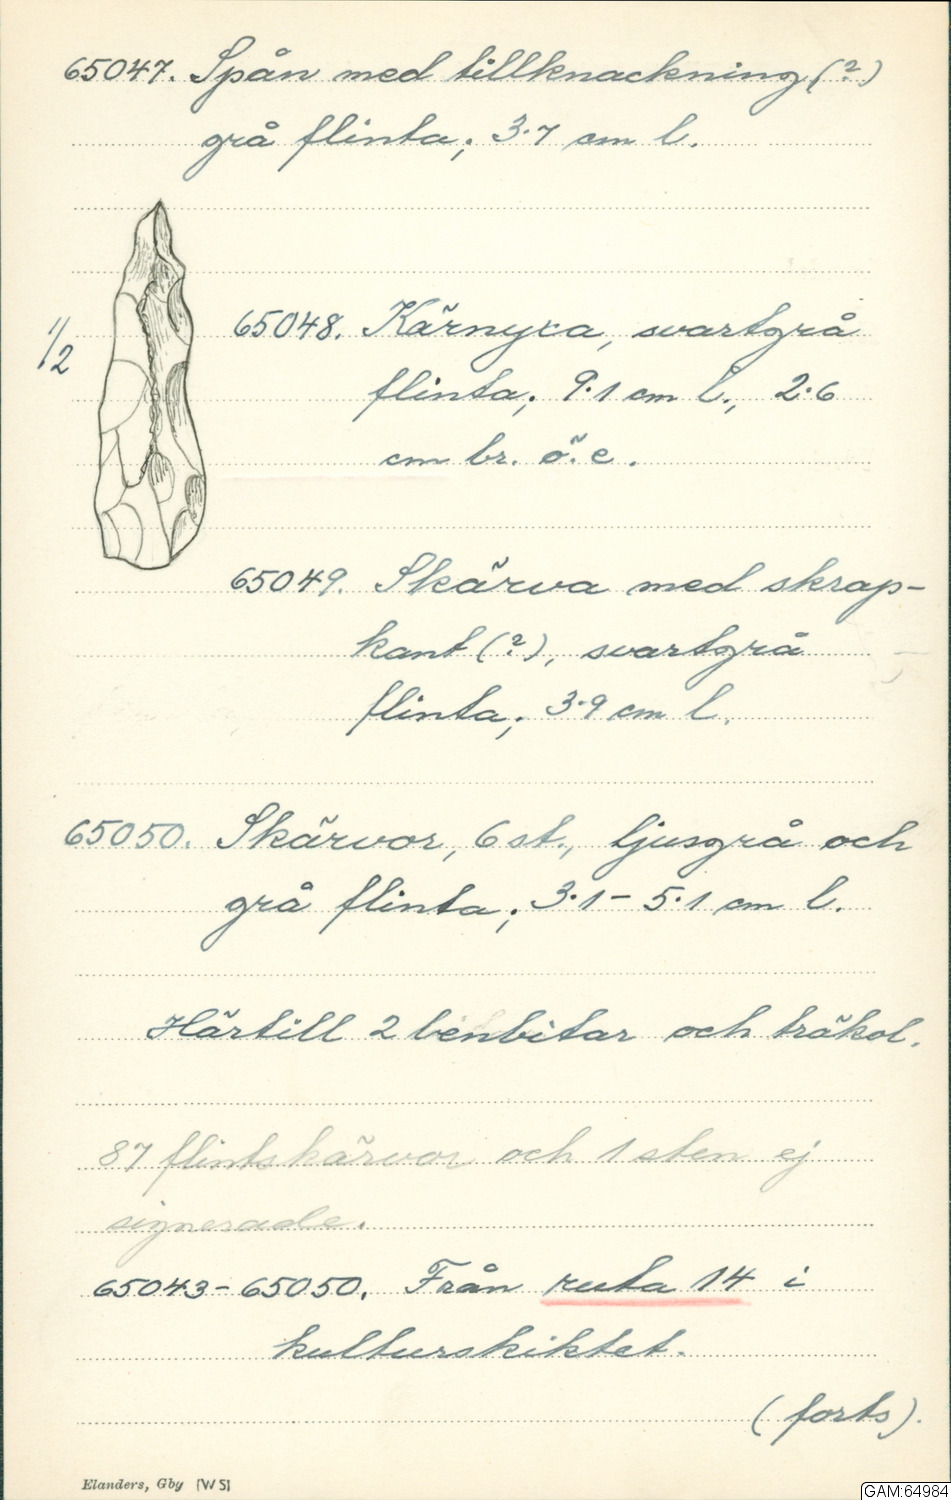 65047. Spån med tillknackning (?)
grå flinta; 3.7 cm l.
1/2
65048. Kärnyxa, svartgrå
flinta; 9.1 cm l., 2.6
cm br. ö. e.
65049. Skärva med skrap-
kant (?), svartgrå
flinta; 3.9 cm l.
65050. Skärvor, 6 st., ljusgrå och
grå flinta; 3.1 - 5.1 cm l.
Härtill 2 benbitar och träkol.
87 flintskärvor och 1 sten ej
signerade.
65043-65050. Från ruta 14 i
kulturskiktet.
(forts).
Elanders, Gby [WS]
GAM:64984